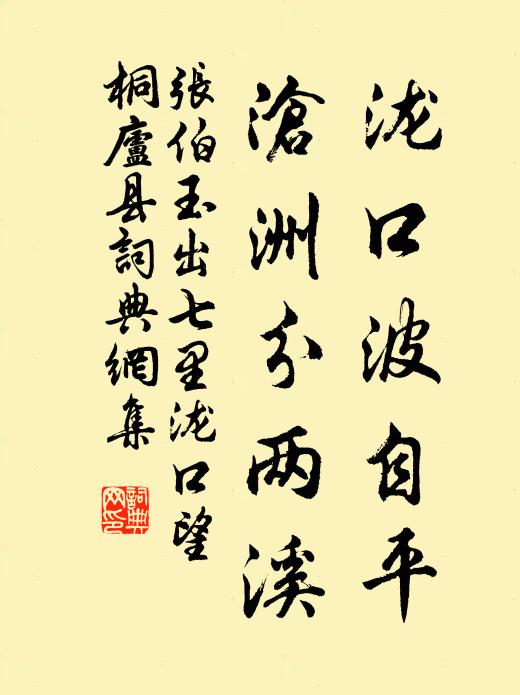 泷口波自平
滄洲分两溪
張伯玉出七里泷口望
桐廬县詞典網集
詞典
网印